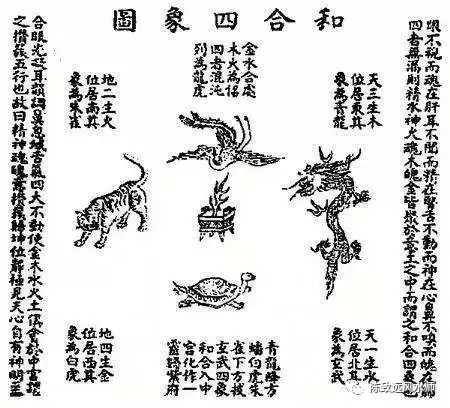 和合四象圖
眼不視而魂在肝耳不聞而精在腎舌不動而神在心鼻不嗅而魄在肺
四者無漏則精水神火魂木魄金皆聚於意土之中而謂之和合四象也
天三生木
位居東其
象為青龍
金水合處
木火為侶
四者混沌
列為龍虎
地二生火
位居南其
象為朱雀
天一生水
位居北其
象為玄武
青龍降方
蟠伏虎朱
雀下方接
玄武四象
和合入中
宮化作一
靈歸紫府
地四生金
位居西其
象為白虎
合眼光凝耳韻調鼻息緘舌氣四大不動使金木水火土俱會於中宮謂
之攢簇五行也故曰精神魂魄意攢簇歸坤位靜極見天心自有神明至
陈致远风水师